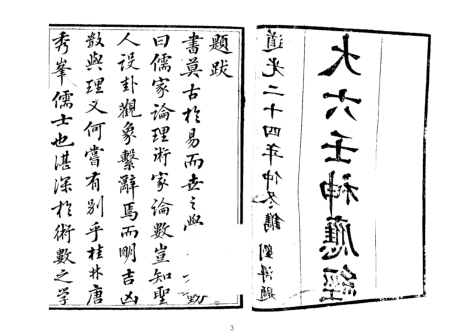 大六壬神應經
道光二十四年仲冬鐫劉題
題跋
書莫古於易而世之
曰儒家論理術家論數豈知聖
人設卦觀象繫辭焉而明吉凶
數與理又何嘗有別乎桂林唐
秀峯儒士也湛深於術數之學
3